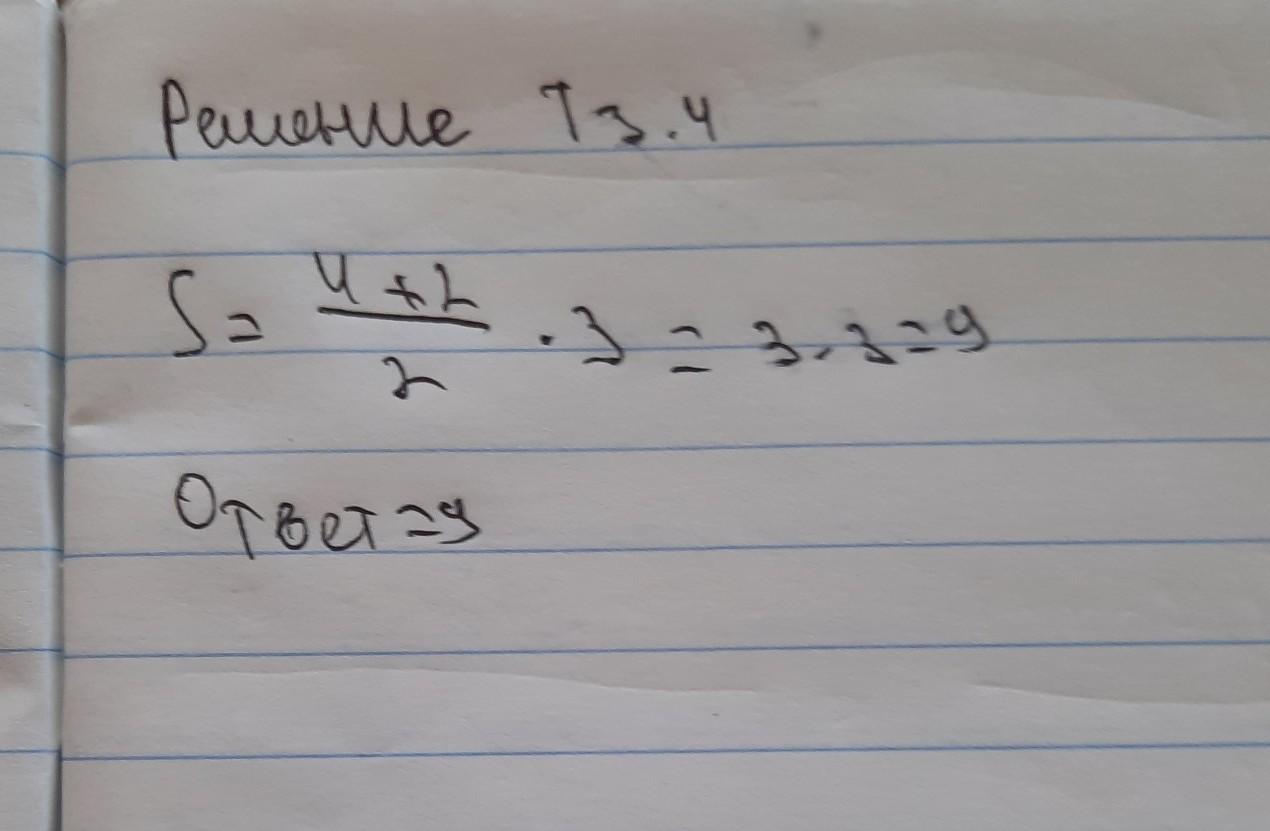 Решение T3.4
S = (4+2)/2 · 3 = 3·3=9
Ответ=9